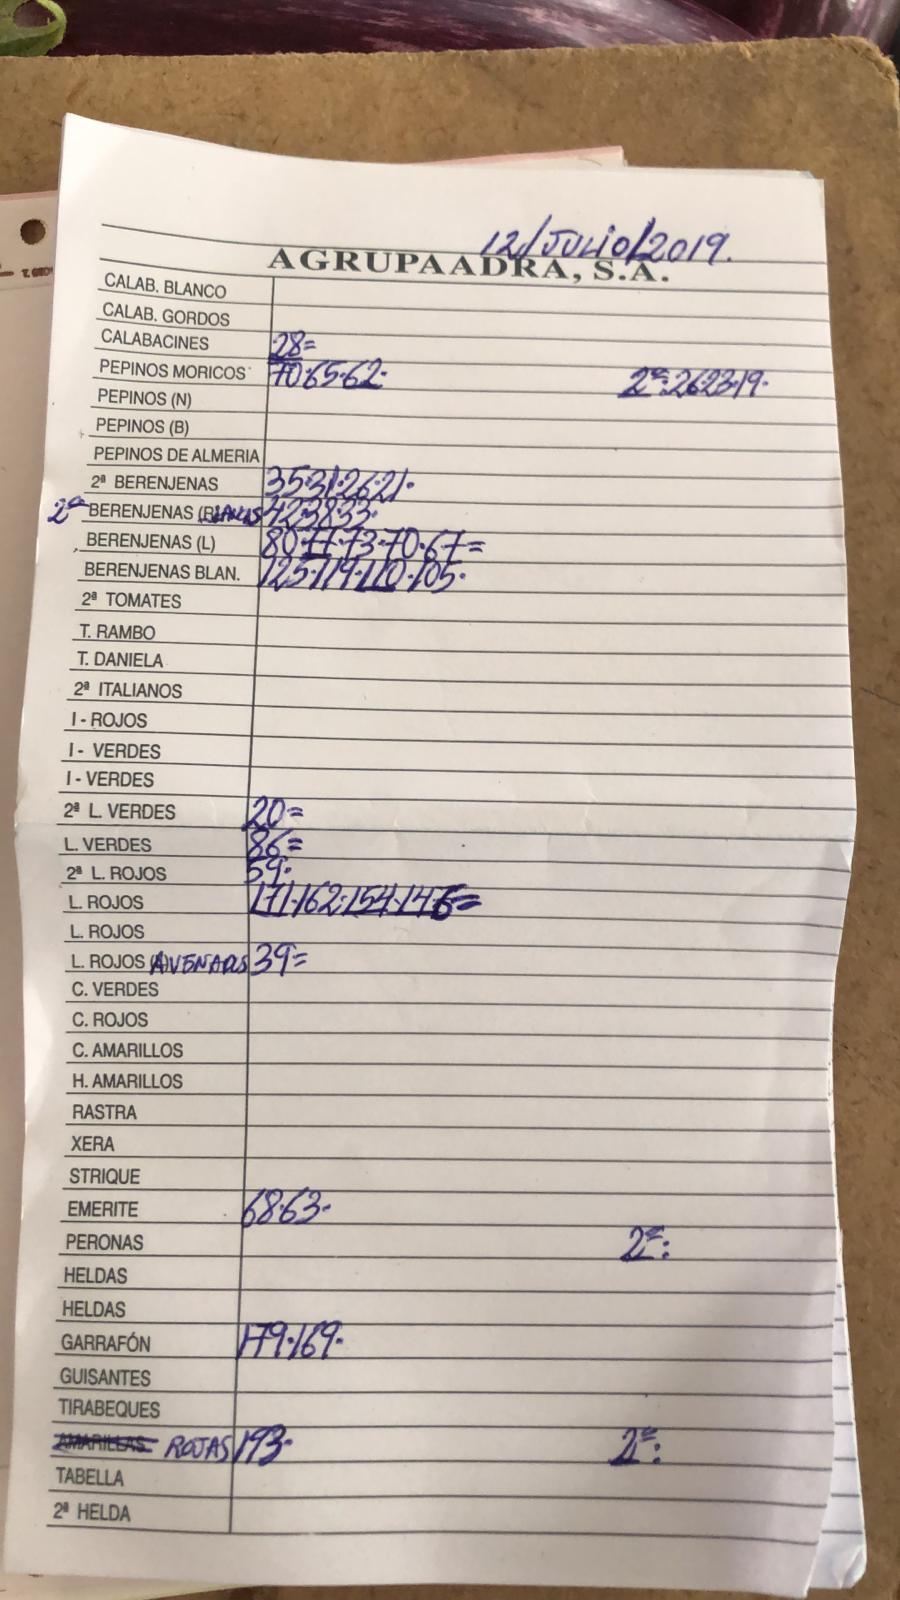 12/JULIO/2019.
AGRUPAADRA, S.A.
CALAB. BLANCO
CALAB. GORDOS
CALABACINES 28=
PEPINOS MORICOS 70·65·62· 2ª:26·23·19·
PEPINOS (N)
PEPINOS (B)
PEPINOS DE ALMERIA
2ª BERENJENAS 35·31·26·21·
2ª BERENJENAS (BLANCAS 42·38·33·
BERENJENAS (L) 80·77·73·70·67=
BERENJENAS BLAN. 125·119·110·105·
2ª TOMATES
T. RAMBO
T. DANIELA
2ª ITALIANOS
I - ROJOS
I - VERDES
I - VERDES
2ª L. VERDES 20=
L. VERDES 86=
2ª L. ROJOS 59·
L. ROJOS 171·162·154·146=
L. ROJOS
L. ROJOS AVENADOS 39=
C. VERDES
C. ROJOS
C. AMARILLOS
H. AMARILLOS
RASTRA
XERA
STRIQUE
EMERITE 68·63·
PERONAS 2ª:
HELDAS
HELDAS
GARRAFÓN 179·169·
GUISANTES
TIRABEQUES
AMARILLAS ROJAS 193· 2ª:
TABELLA
2ª HELDA